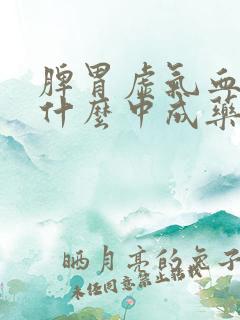 脾胃虚氣血
什麼中成藥
晒月亮的兔子
未经同意禁止转载